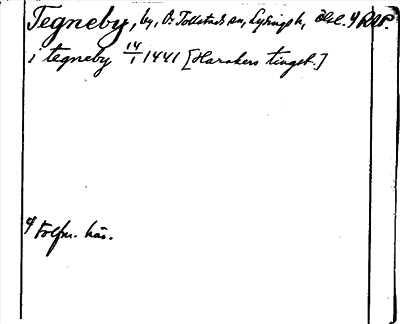 Tegneby, by, V. Tollstads sn, Lysings h, Östl. 4) RAP.
i tegneby 14/1 1441 [Harakers tingst.]
4) Folfm. här.